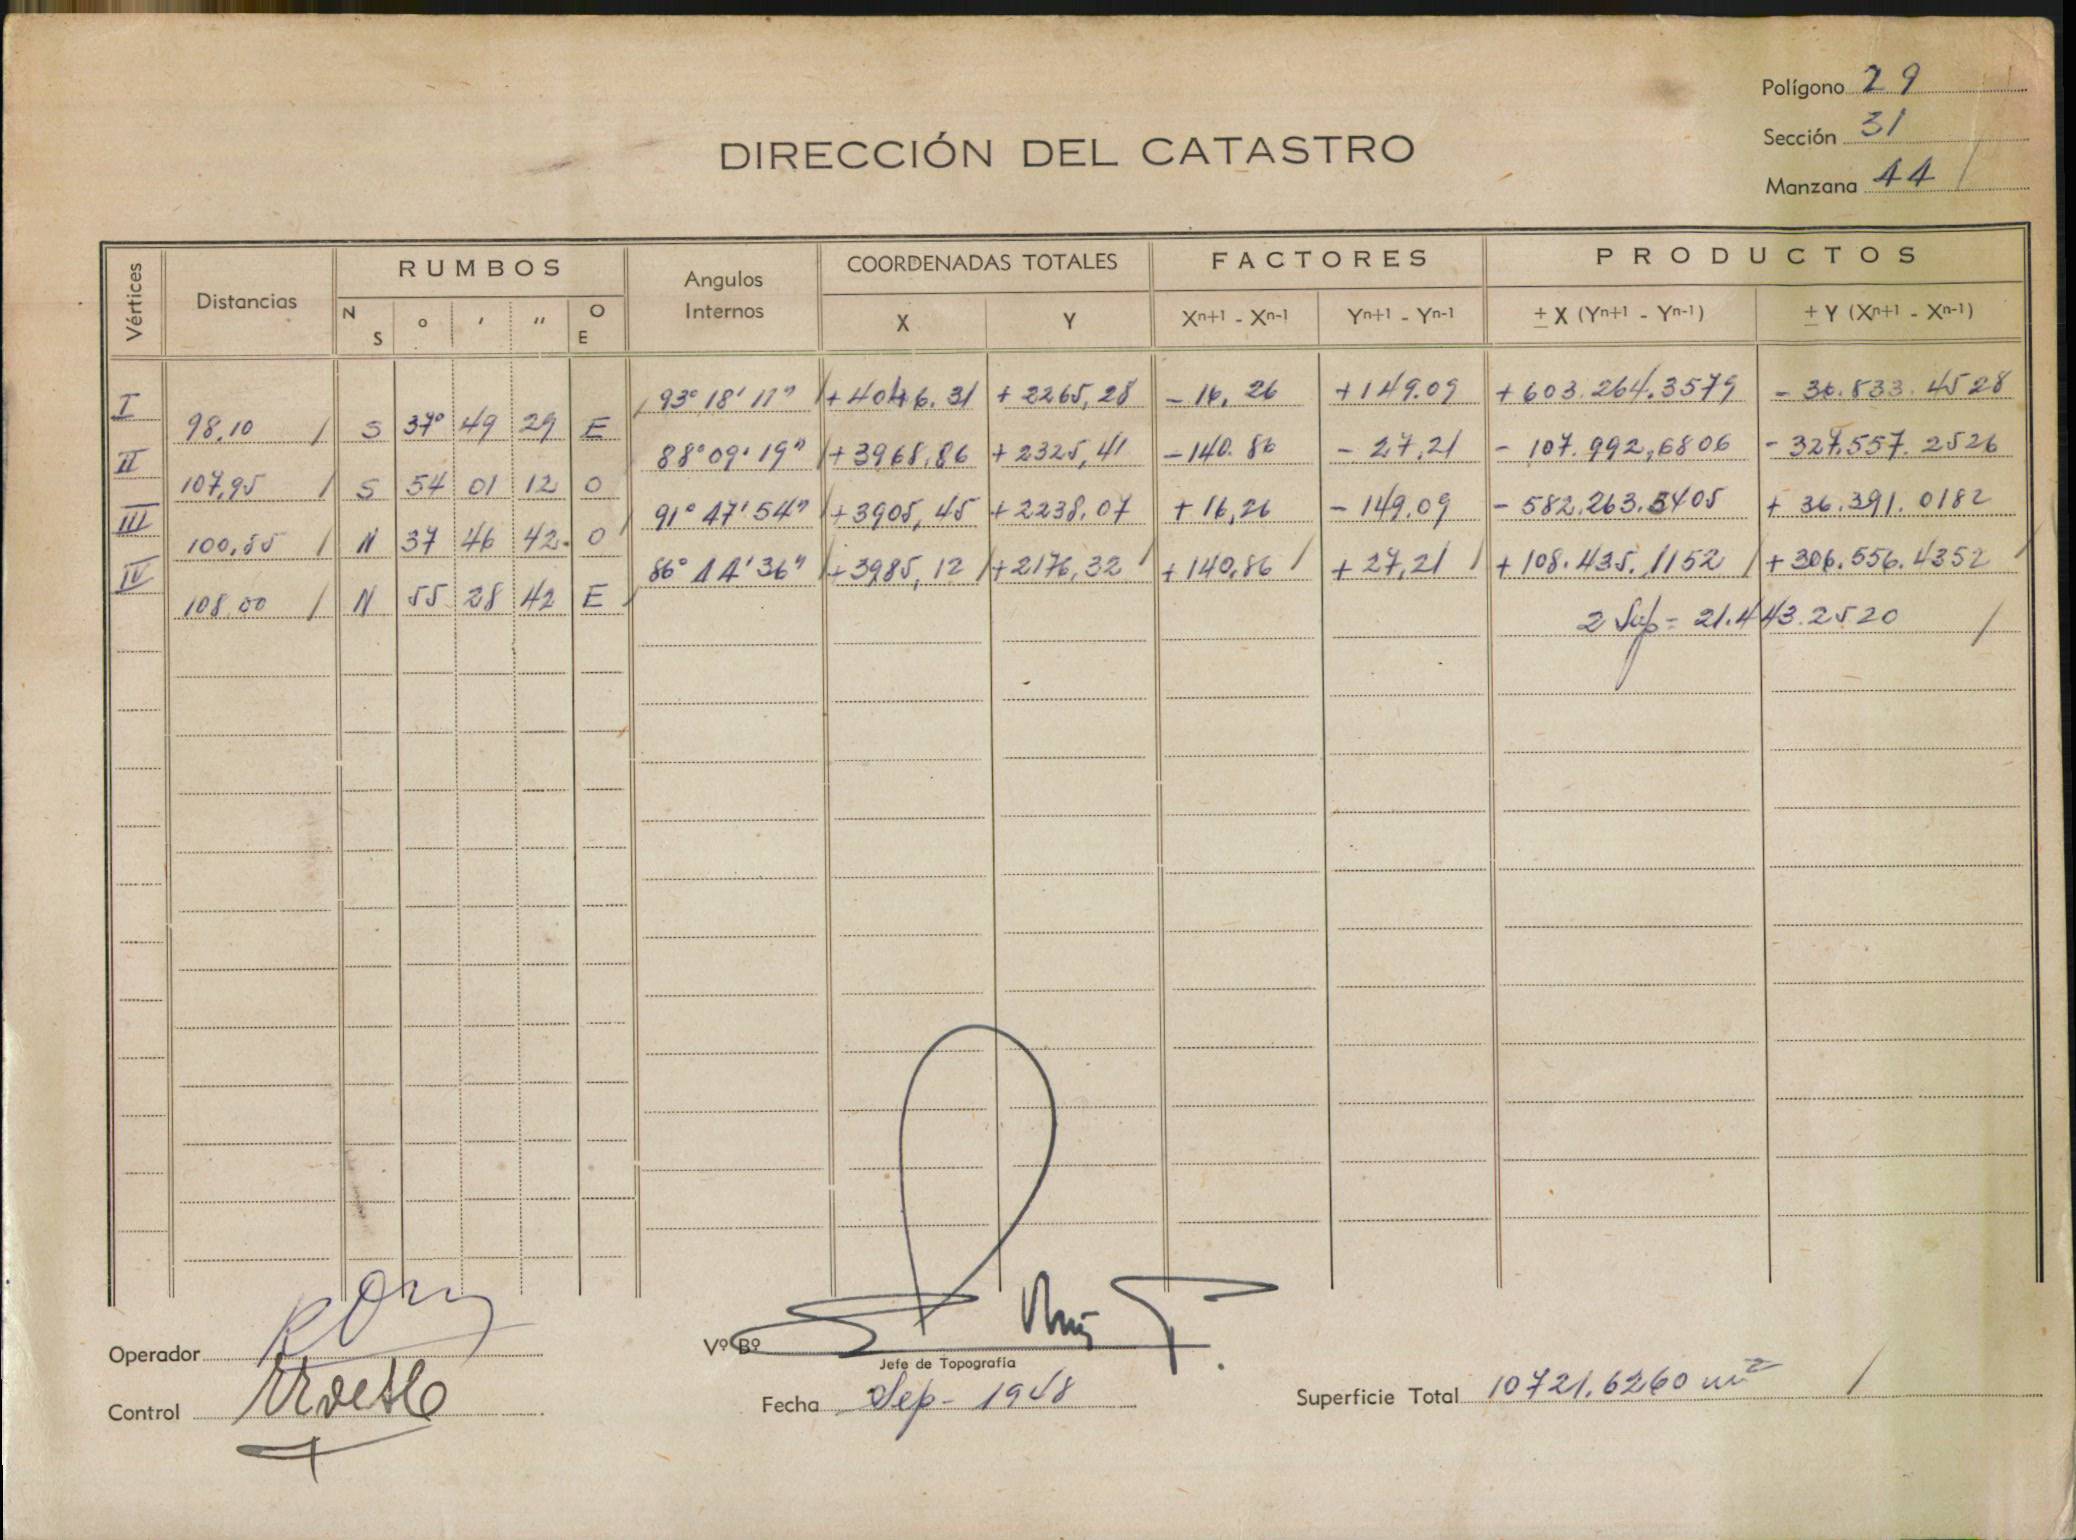 Polígono 29
Sección 31
Manzana 44
DIRECCIÓN DEL CATASTRO
Vértices Distancias RUMBOS Angulos Internos COORDENADAS TOTALES FACTORES PRODUCTOS
N S ° ' '' O E X Y Xn+1 - Xn-1 Yn+1 - Yn-1 ± X (Yn+1 - Yn-1) ± Y (Xn+1 - Xn-1)
I 93° 18' 11" +4046.31 +2265,28 -16,26 +149.09 +603.264.3579 -36.833.4528
98,10 S 37° 49 29 E
II 88° 09' 19" +3968,86 +2325,41 -140.86 -27,21 -107.992,6806 -327.557.2526
107,95 S 54 01 12 O
III 91° 47' 54" +3905,45 +2238,07 +16,26 -149.09 -582.263.5405 +36.391.0182
100,55 N 37 46 42 O
IV 86° 44' 36" +3985,12 +2176,32 +140,86 +27,21 +108.435.1152 +306.556.4352
108,00 N 55 28 42 E
2 Sup = 21.443.2520
Operador
Vº Bº
Jefe de Topografía
Control
Fecha Sep- 1948
Superficie Total 10721.6260 m²